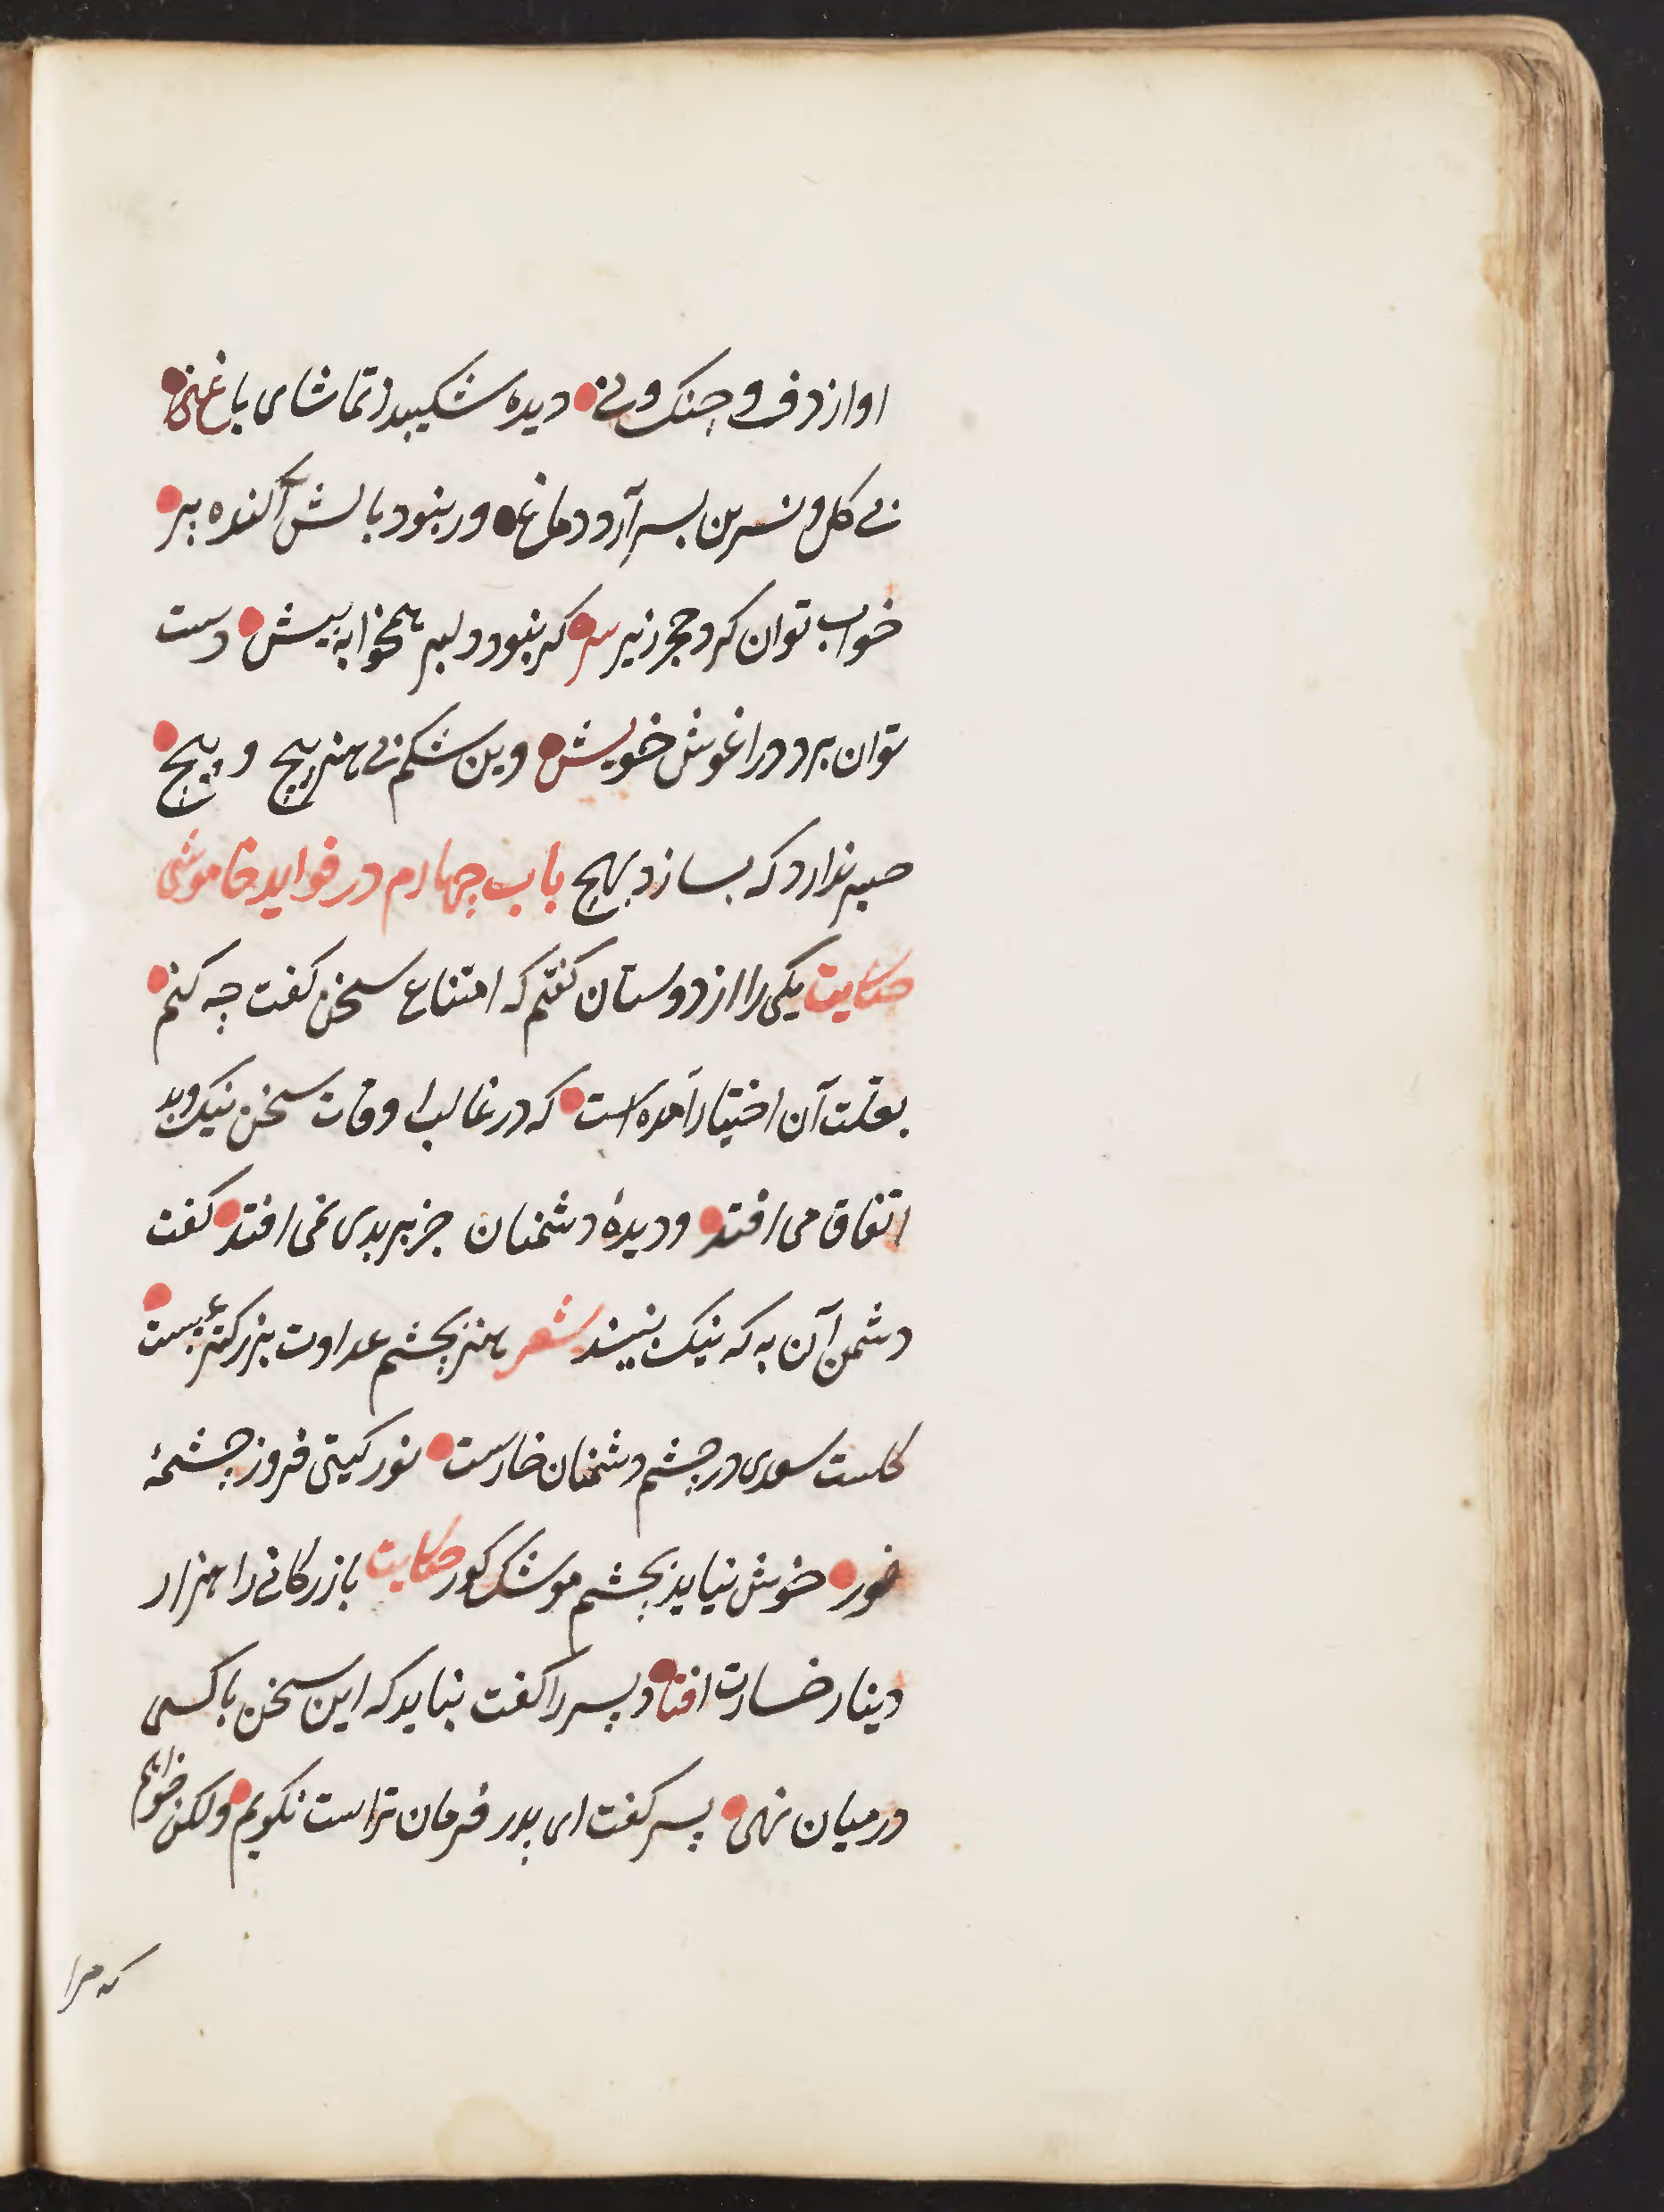 اواز دف و چنک و نی دیده شکیبد ز تماشای باغ
بی کل و نسرین بسر آرد دماغ ور نبود بالش آکنده بپر
خواب توان کرد حجر زیر سر کر نبود دلبر همخوابه پیش دست
توان برد در اغوش خویش وین شکم بی هنر پیچ و پیچ
صبر ندارد که بسازد بهیچ باب چهارم در فواید خاموشی
حکایت یکی را از دوستان کفتم که امتناع سخن کفت چه کنم
بعلت آن اختیار آمده است که در غالب اوقات سخن نیک و بد
اتفاق می افتد و دیدهٔ دشمنان جز بر بدی نمی افتد کفت
دشمن آن به که نیک نبیند شعر هنر بچشم عداوت بزرکتر عیبست
کلست سعدی در چشم دشمنان خارست نور کیتی فروز چشمهٔ
خور خوش نیاید بچشم موشک کور حکایت بازرکانی را هزار
دینار خسارت افتاد پسر را کفت نباید که این سخن با کسی
در میان نهی پسر کفت ای پدر فرمان تراست نکویم ولکن خواهم
که مرا